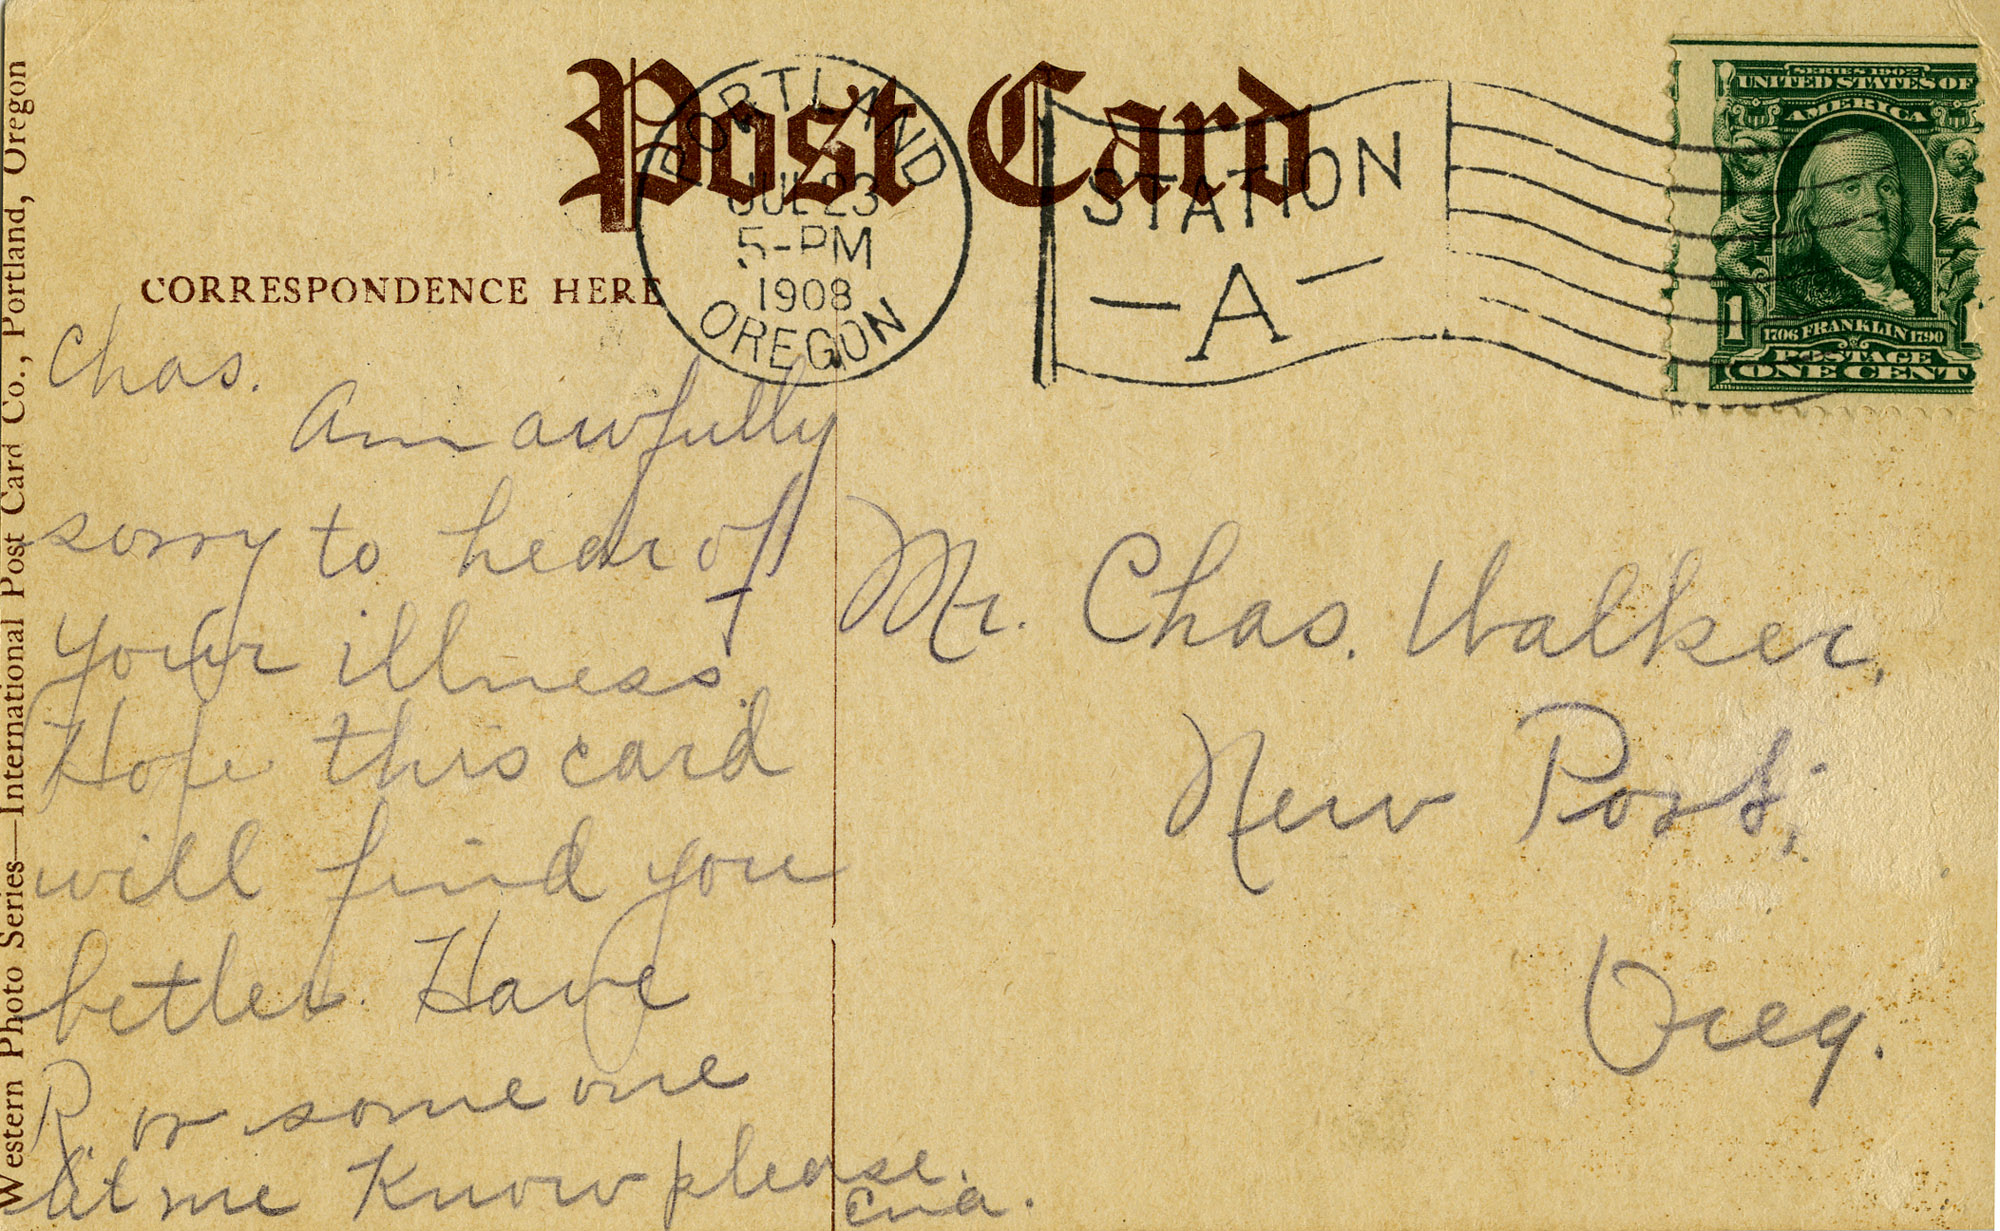 Post Card
PORTLAND
JUL 23
5-PM
1908
OREGON
STATION
-A-
SERIES 1902
UNITED STATES OF
AMERICA
1
1706 FRANKLIN 1790
POSTAGE
ONE CENT
CORRESPONDENCE HERE
Chas.
Am awfully
sorry to hear of
your illness.
Hope this card
will find you
better. Have
R. or some one
let me Know please.
Ena.
Mr. Chas. Walker,
New Post,
Oreg.
Western Photo Series—International Post Card Co., Portland, Oregon